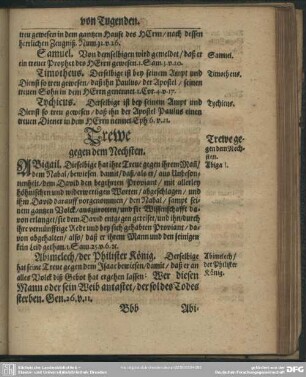 von Tugenden.
ten gewesen in dem gantzen Hause des HErrn / nach dessen
herrlichen Zeugniß. Num. 12. v. 26.
Samuel. Von demselbigen wird gemeldet / daß er
ein trewer Prophet des HErrn gewesen. 1. Sam. 3. v. 20.
Samuel.
Timotheus. Derselbige ist bey seinem Ampt und
Dienst so trew gewesen / daß ihn Paulus / der Apostel / seinen
trewen Sohn in dem HErrn genennet. 1. Cor. 4. v. 17.
Timotheus.
Tychicus. Derselbige ist bey seinem Ampt und
Dienst so trew gewesen / daß ihn der Apostel Paulus einen
trewen Diener in dem HErrn nennet. Eph. 6. v. 21.
Tychicus.
Trewe
gegen dem Nechsten.
Trewe ge-
gen dem Nech-
sten.
ABigail. Dieselbige hat ihre Trew gegen ihrem Mañ /
dem Nabal / bewiesen damit / daß / als er / aus Unbeson-
nenheit / dem David den begehrten Proviant / mit allerley
höhnischen und widerwertigen Worten / abgeschlagen / und
ihm David darauff vorgenommen / den Nabal / sampt sei-
nem gantzen Volck / auszurotten / und sie Wissenschafft da-
von erlanget / sie dem David entgegen gereiset / und ihn / durch
ihre vernünfftige Rede und bey sich gehabten Proviant / da-
von abgehalten / also / daß er ihrem Mann und den seinigen
kein Leid gethan. 1. Sam. 25. v. 6. 21.
Abigail.
Abimelech / der Philister König. Derselbige
hat seine Trewe gegen dem Isaac bewiesen / damit / daß er an
alles Volck diß Gebot hat ergehen lassen: Wer diesen
Mann oder sein Weib antastet / der sol des Todes
sterben. Gen. 26. v. 11.
Abimelech /
der Philister
König.
Bbb
Abi-